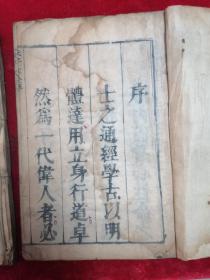 序
士之通經學古以明
體達用立身行道卓
然爲一代偉人者必